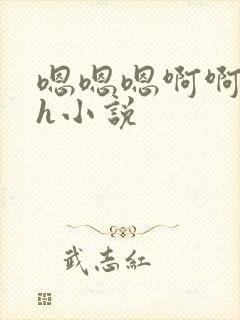 嗯嗯嗯啊啊
h小説
武志紅